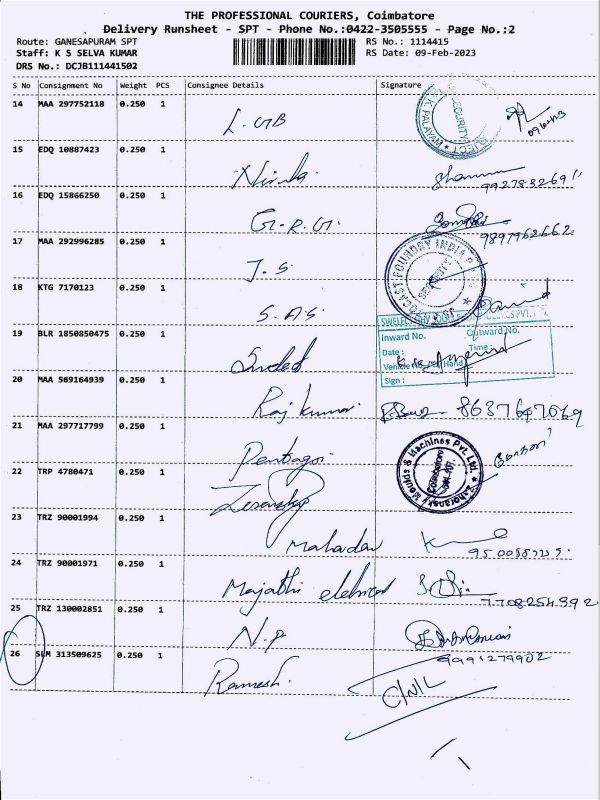 THE PROFESSIONAL COURIERS, Coimbatore
Delivery Runsheet - SPT - Phone No.:0422-3505555 - Page No.:2
Route: GANESAPURAM SPT RS No.: 1114415
Staff: K S SELVA KUMAR RS Date: 09-Feb-2023
DRS No.: DCJB111441502
S No Consignment No Weight PCS Consignee Details Signature
14 MAA 297752118 0.250 1
15 EDQ 10887423 0.250 1
16 EDQ 15866250 0.250 1 G.R.G.
17 MAA 292996285 0.250 1 J.S.
FOUNDRY INDIA
SECURITY
18 KTG 7170123 0.250 1 S.A.S.
19 BLR 1850850475 0.250 1
Inward No. Outward No.
Date : Time :
Sign :
20 MAA 569164939 0.250 1 Raj kumar 8637647069
21 MAA 297717799 0.250 1 Pentagon
Moulds & Machines Pvt. Ltd.
Coimbatore
22 TRP 4780471 0.250 1
23 TRZ 90001994 0.250 1 Mahadev
24 TRZ 90001971 0.250 1
7708254392
25 TRZ 130002851 0.250 1 N.P
9991279902
26 SLM 313509625 0.250 1 Ramesh. C/N/L